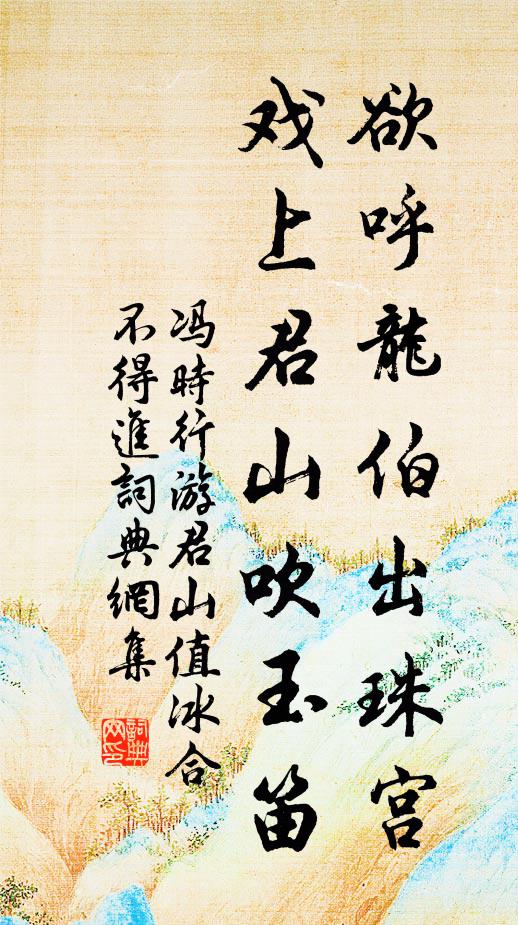 欲呼龍伯出珠宫
戏上君山吹玉笛
冯時行游君山值冰合
不得進詞典網集
詞典
网印